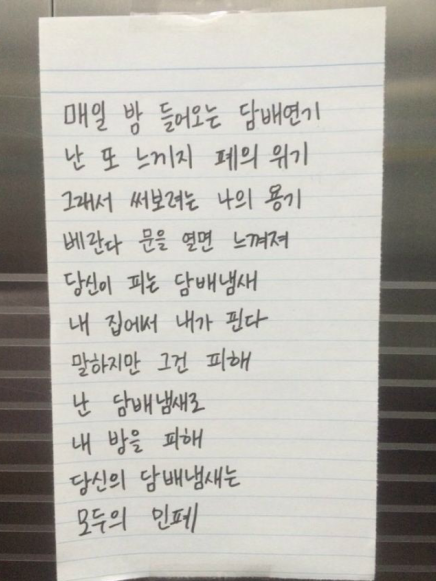 매일 밤 들어오는 담배연기
난 또 느끼지 폐의 위기
그래서 써보려는 나의 용기
베란다 문을 열면 느껴져
당신이 피는 담배냄새
내 집에서 내가 핀다
말하지만 그건 피해
난 담배냄새로
내 방을 피해
당신의 담배냄새는
모두의 민폐